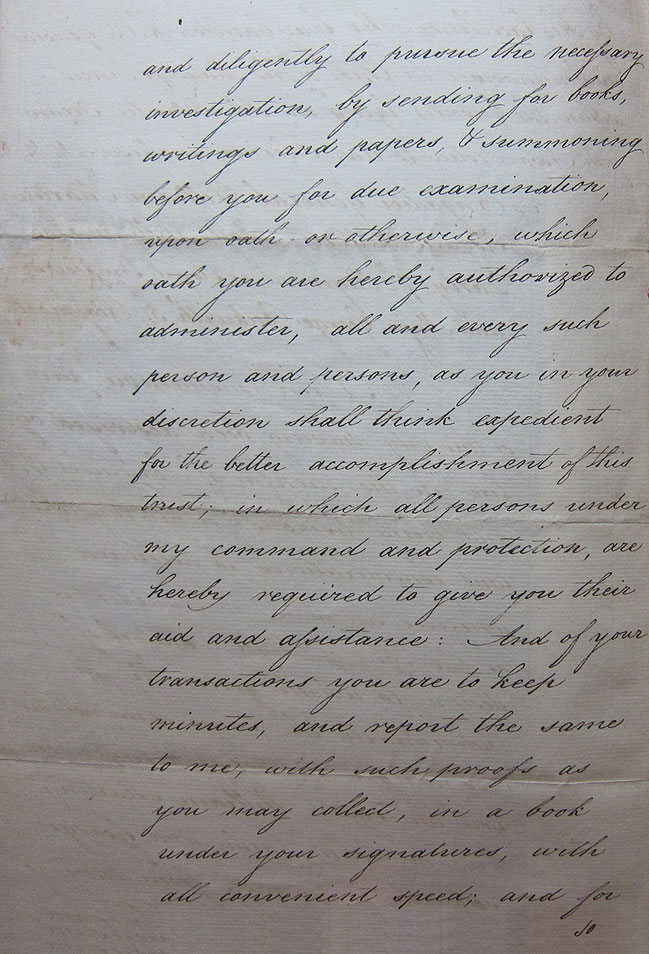 and diligently to pursue the neceſsary
investigation, by sending for books,
writings and papers, & summoning
before you for due examination,
upon oath or otherwise, which
oath you are hereby authorized to
administer, all and every such
person and persons, as you in your
discretion shall think expedient
for the better accomplishment of this
trust; in which all persons under
my command and protection, are
hereby required to give you their
aid and aſsistance: And of your
transactions you are to keep
minutes, and report the same
to me, with such proofs as
you may collect, in a book
under your signatures, with
all convenient speed; and for
so